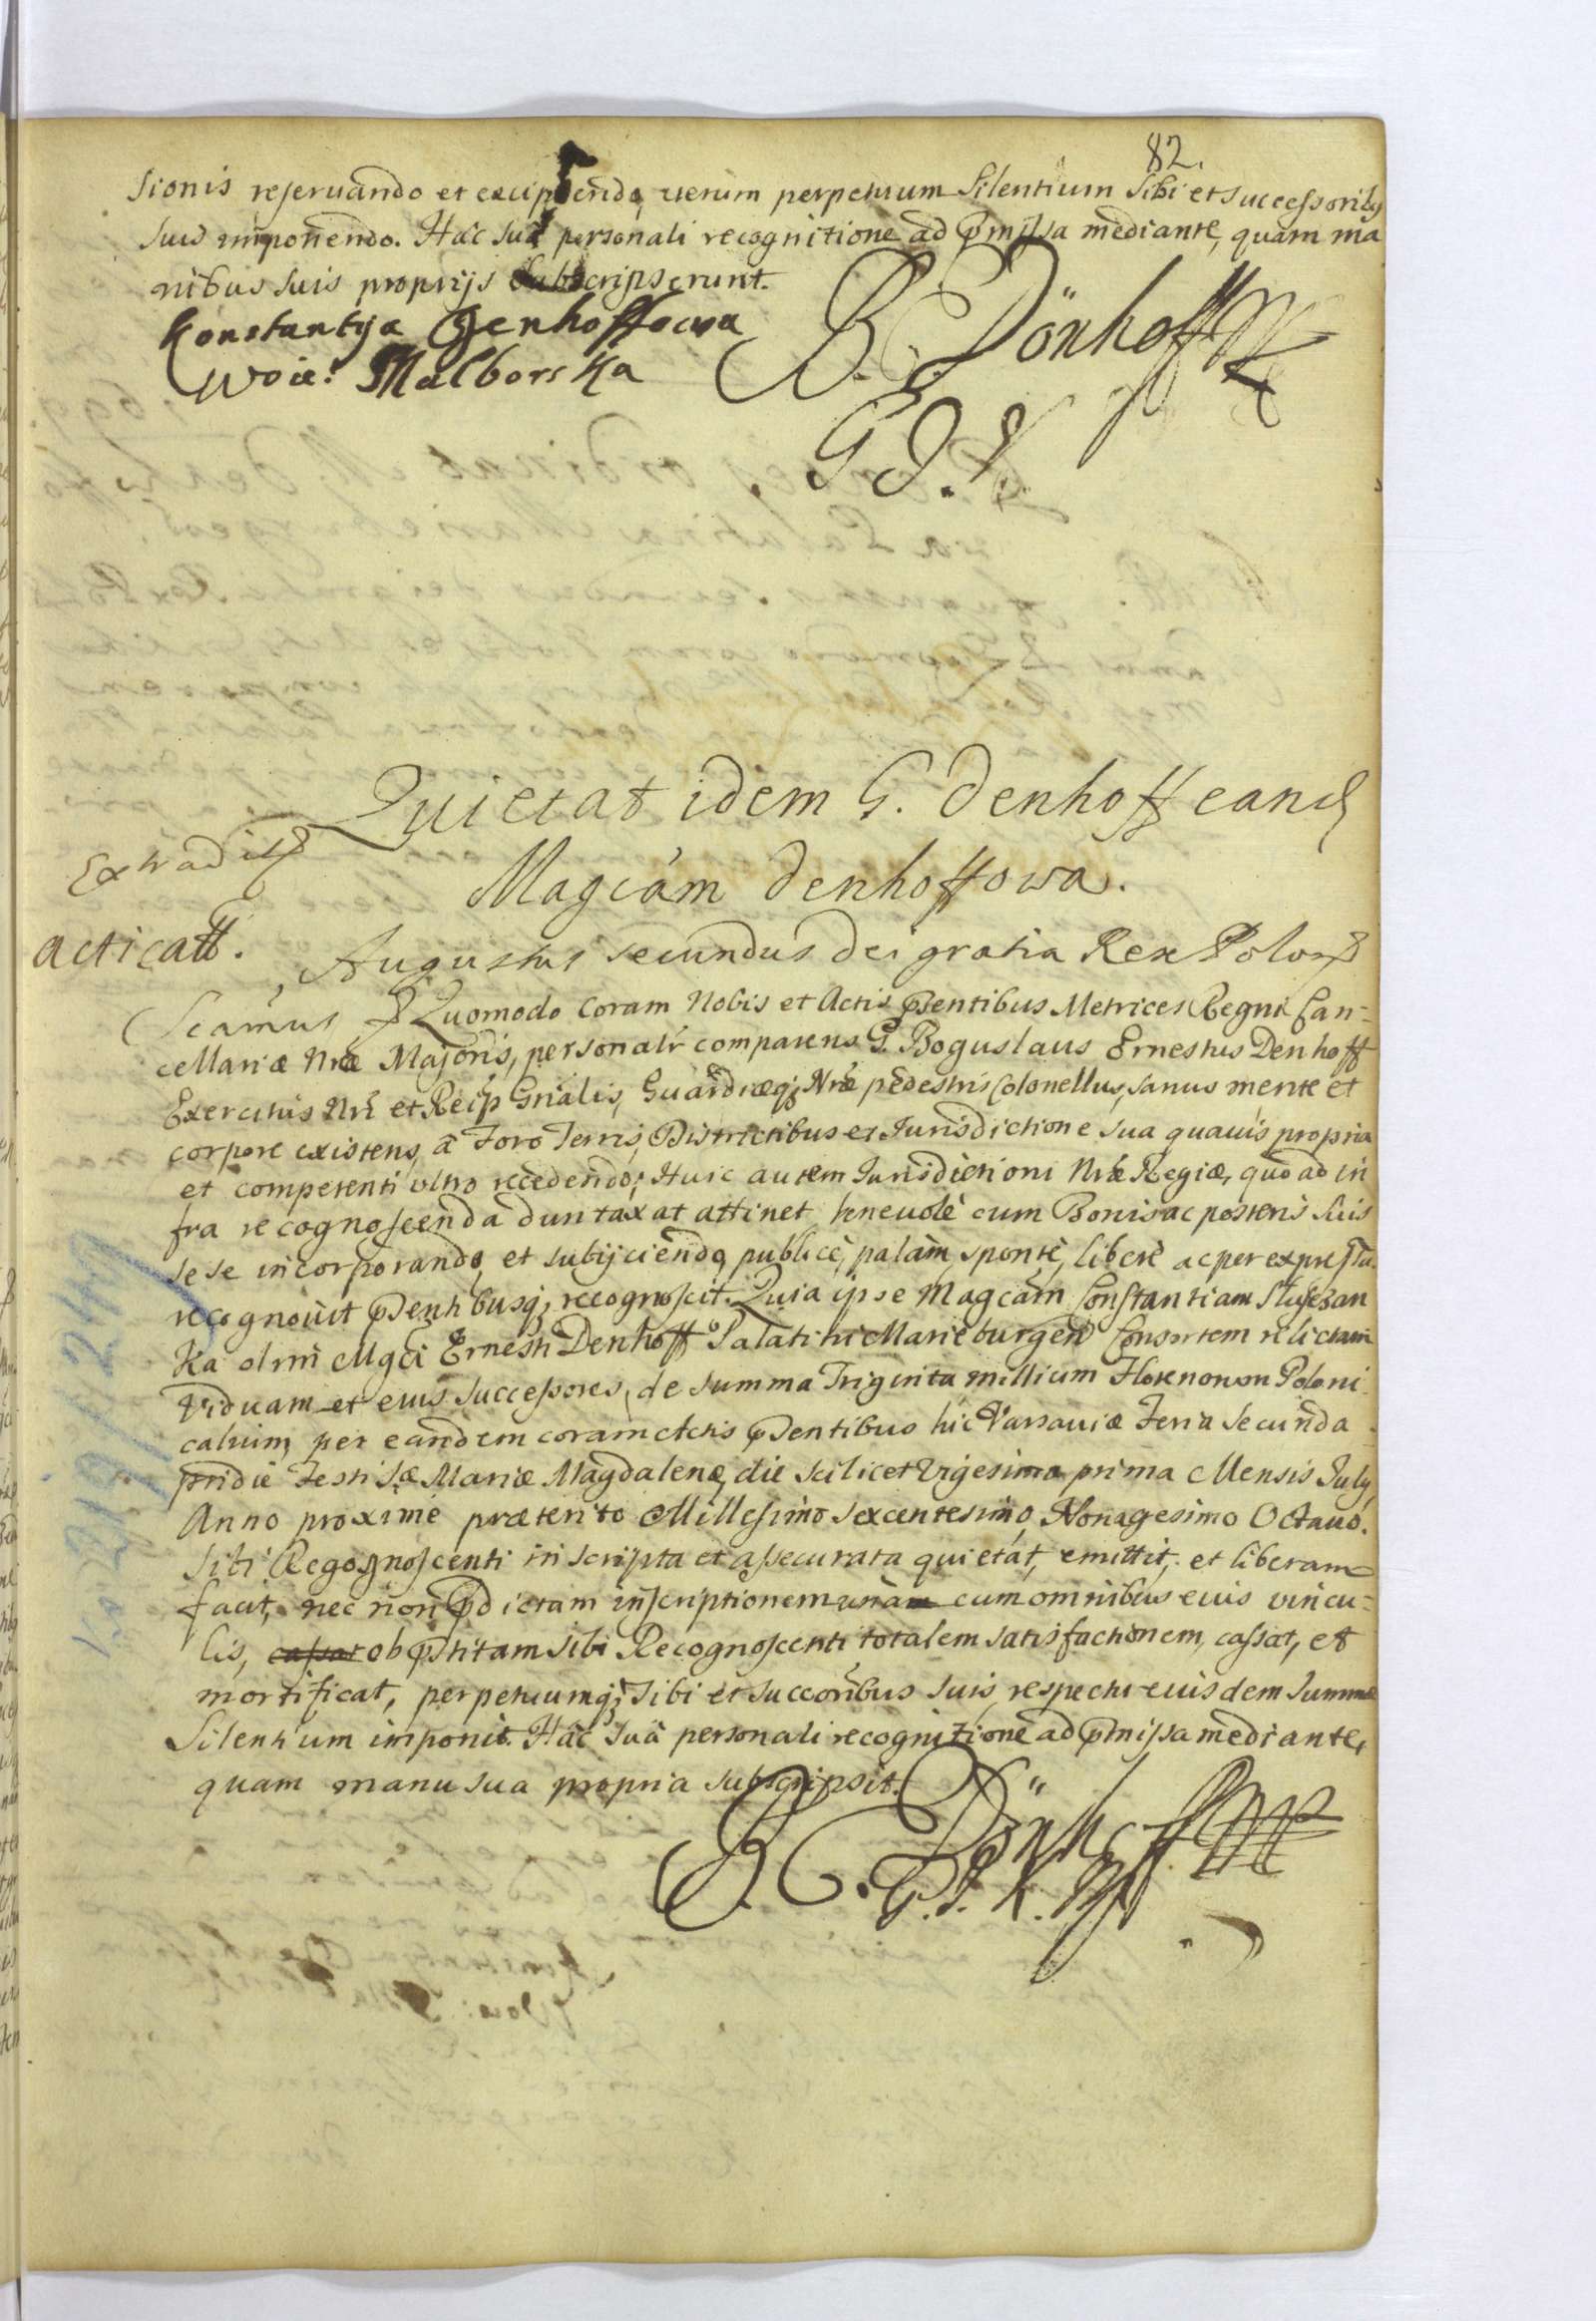 82.
sionis reservando et excipiendo, verum perpetuum Silentium Sibi et Successoribq
suis imponendo. Hac sua personali recognitione ad pmissa mediante, quam ma
nibus suis proprijs subscripserunt.
Konstantija Denhoffowa
Woie: Malborska
B. E. Dönhoff
Quietat idem G. Denhoff eand
Extradit
Magcam Denhoffowa.
acticatt.
Augustus secundus dei gratia Rex Polon
Scamus Quomodo coram Nobis et Actis psentibus Metrices Regni Can-
cellariæ Nræ Majoris, personalr comparens G. Boguslaus Ernestus Denhoff
Exercitus Nri et Reip Gnalis, Guardiæq; Nræ pedestris Colonellus, sanus mente et
corpore existens, a Foro Terris, Districtibus et Jurisdictione sua quavis propria
et competenti ultro recedendo; Huic autem Jurisdictioni Nræ Regiæ, quo ad in
fra recognoscenda duntaxat attinet benevole cum Bonis ac posteris suis
sese incorporando, et subijciendo, publice, palam, sponte, libere ac per expressum
recognovit psentibusq; recognoscit. Quia ipse Magcam Constantiam Sluszan
Ka olim Mgci Ernesti Denhoff Palatini Marieburgen Consortem relictam
Viduam et eius successores, de summa Triginta millium Florenorum Poloni
calium, per eandem coram Actis psentibus hic Varsaviæ Feria Secunda
pridie Festi Sæ Mariæ Magdalenæ, die scilicet Vigesima prima Mensis July
Anno proxime præterito Millesimo sexcentesimo Nonagesimo Octavo.
sibi Regognoscenti inscripta et assecurata quietat, emittit, et liberam
facit, nec non pdictam inscriptionem unam cum omnibus eius vincu-
lis, cassat ob pstitam sibi Recognoscenti totalem satisfactionem, cassat, et
mortificat, perpetuumq; sibi et succoribus suis, respectu eiusdem summæ
Silentium imponit. Hac sua personali recognitione ad pmissa mediante,
quam manu sua propria subscripsit.
B. E. Dönhoff